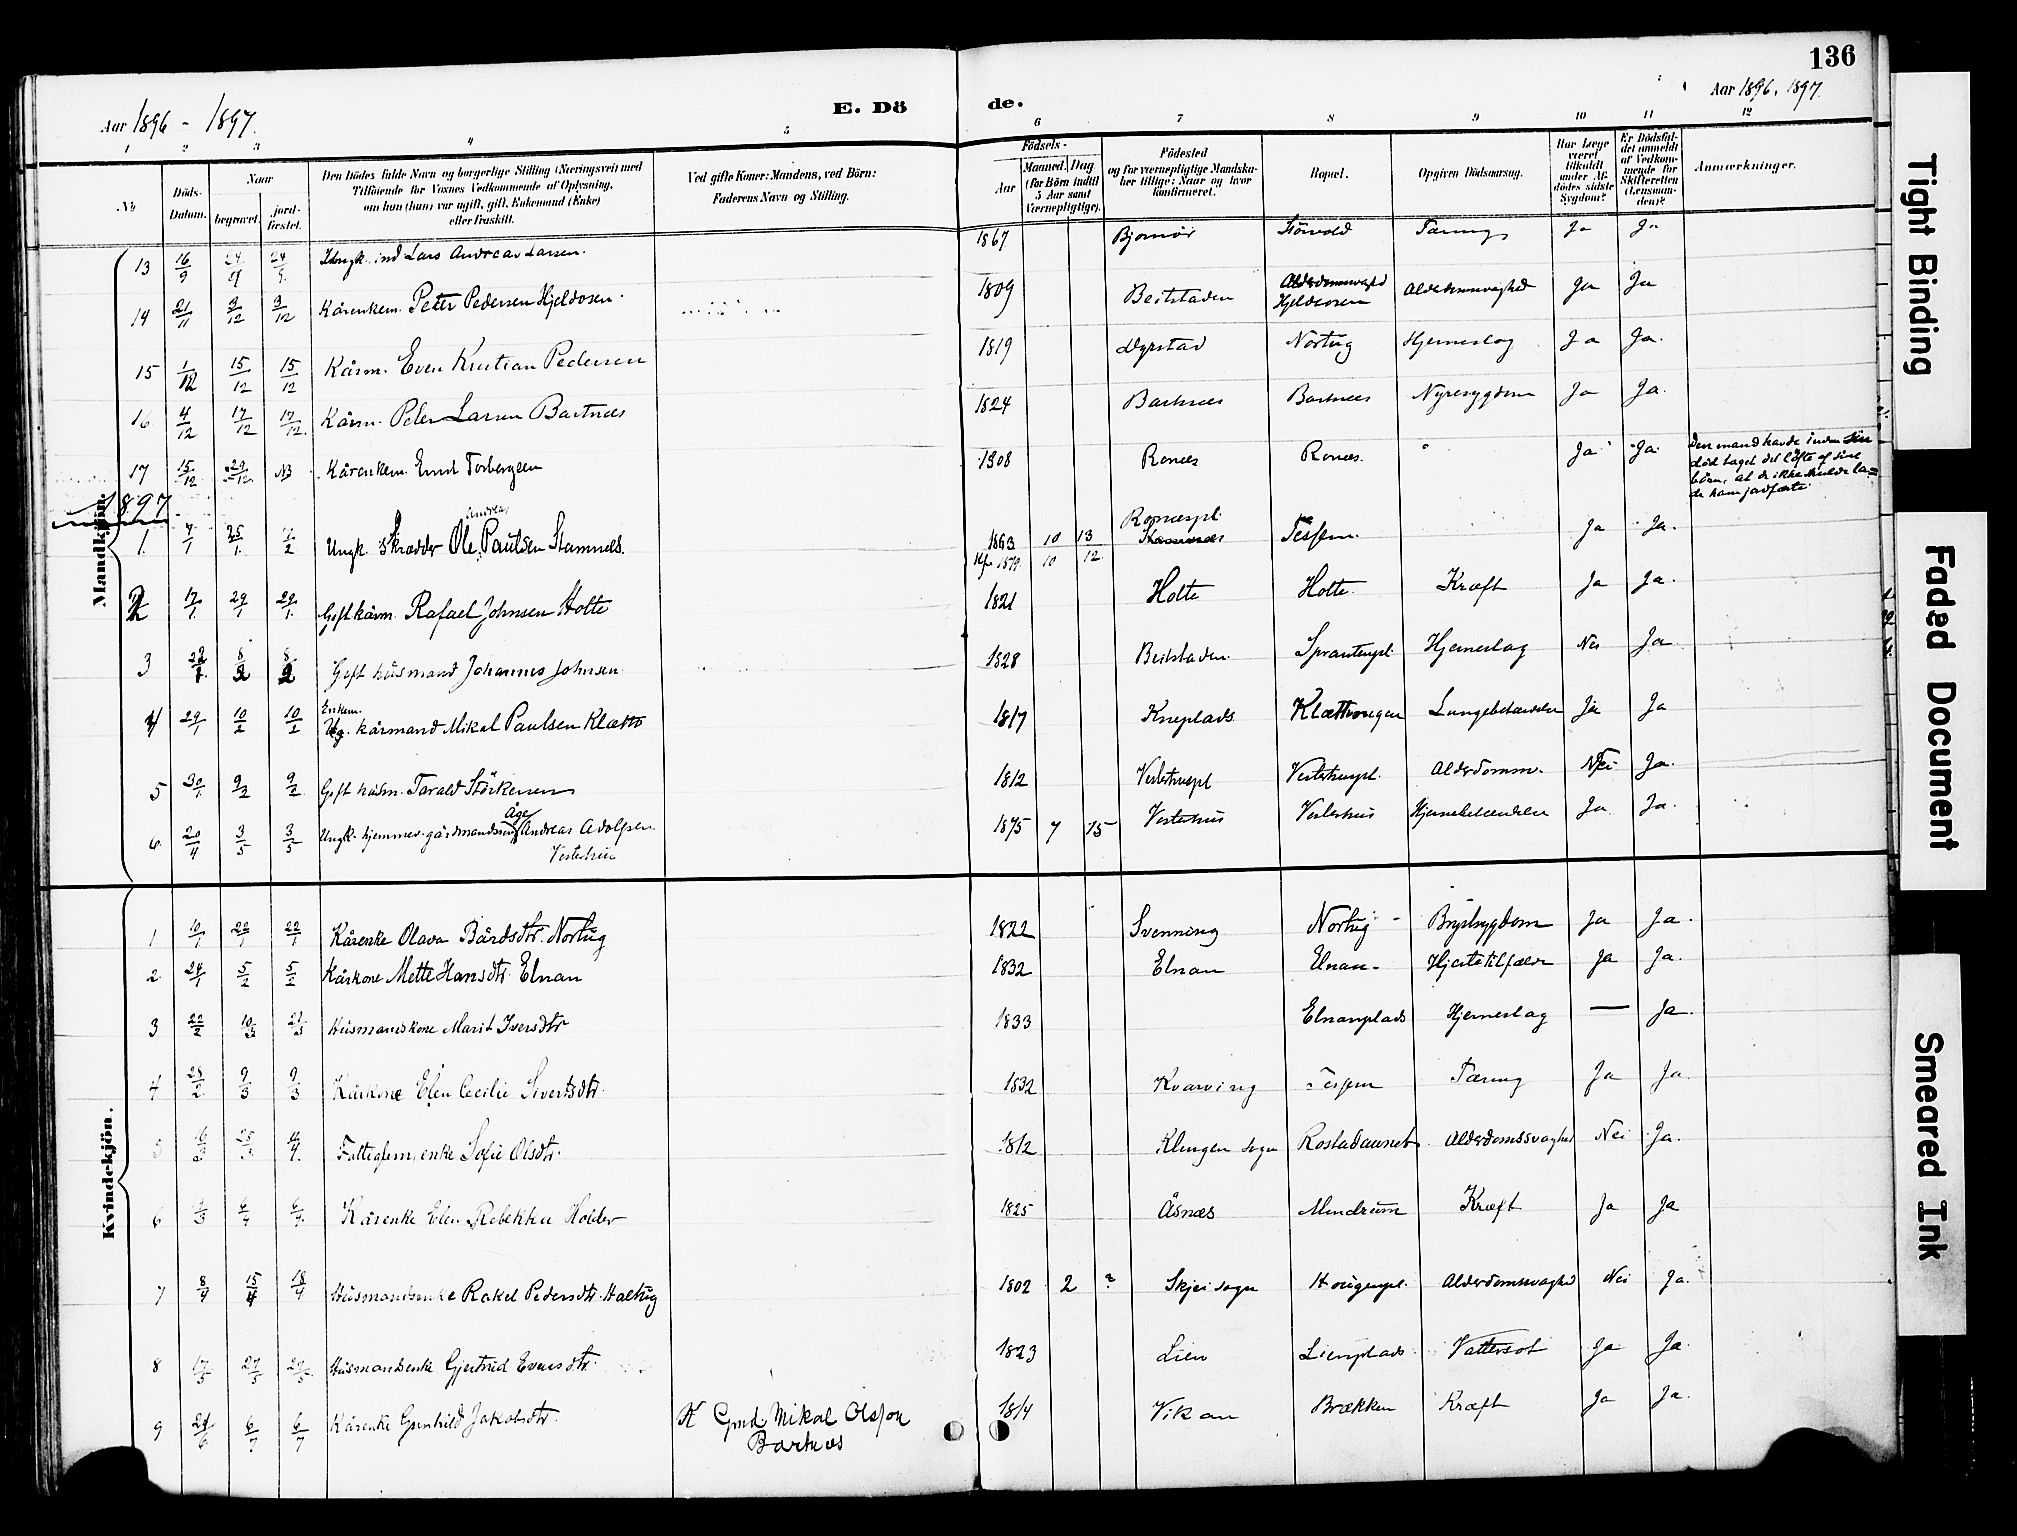 136
Aar 1896 - 1897.
E. Dö
de.
Aar 1896, 1897.
1 2 3 4 5 6 7 8 9 10 11 12
No
Döds-
Datum.
Naar
begravet.
jord-
fæstet.
Den Dödes fulde Navn og borgerlige Stilling (Næringsvei) med
Tilföiende for Voxnes Vedkommende af Oplysning,
om han (hun) var ugift, gift, Enkemand (Enke)
eller fraskilt.
Ved gifte Koner: Mandens, ved Börn:
Faderens Navn og Stilling.
Födsels-
Aar
Maaned.
Dag
(for Börn indtil
5 Aar samt
Værnepligtige).
Födested
og for værnepligtige Mandska-
ber tillige: Naar og hvor
konfirmeret.
Bopæl.
Opgiven Dödsaarsag.
Har Læge
været
tilkaldt
under Af-
dödes sidste
Sygdom?
Er Dödsfal-
det anmeldt
af Vedkom-
mende for
Skifteretten
(Lensman-
den)?
Anmærkninger.
Mandkjön.
13 16/9 24/9 24/9 Ungk. ind Lars Andreas Larsen. 1867 Bjørnør Tæring Ja Ja
14 21/11 9/12 9/12 Kårenkem. Peter Pedersen Hjeldosen. 1809 Beitstaden Hjeldosen Alderdomsvaghed Ja Ja
15 1/12 15/12 15/12 Kårm. Even Kristian Pedersen 1819 Dyrstad Nortug Hjerneslag Ja Ja.
16. 4/12 17/12 17/12. Kårm. Peter Larsen Bartnæs 1824 Bartnæs Bartnæs Nyresygdom Ja Ja.
17 15/12 29/12 NB Kårenkem. Ernst Torbergsen 1808 Ronæs Ronæs. Ja Ja.
Den mand havde inden sin
død taget det løfte af sine
børn, at de ikke skulde la-
de ham jordfæste
1897
1. 7/1 25/1. 7/2 Ungk. Skrædder Ole Andreas Paulsen Stamnes. 1863 10 13 Ronæspl. Tessem. Ja Ja.
Kf. 1879 10 12.
2 17/1. 29/1 29/1. Gift kårm. Rafael Johnsen Holte 1821 Holte Holte. Kræft Ja Ja.
3 22/1. 8/2 8/2 Gift husmand Johannes Johnsen 1828 Beitstaden. Sprautenpl. Hjerneslag Nei Ja
4 29/1 10/2 10/2 Enkem. kårmand Mikal Paulsen Klætt 1817 Kneplads Klættvongen Lungebetændelse Ja Ja
5 30/1 9/2 9/2 Gift husm. Tarald Störkersen 1812 Vesterhuspl Vesterhuspl. Alderdomm. Nei Ja.
6. 20/4 3/5 3/5 Ungk. hjemmev. gårdmandssøn Åge Andreas Adolfsen 1875 7 15 Vesterhus Vesterhus Hjernebetændelse Ja. Ja.
Vesterhus
Kvindekjön.
1 10/1 22/1 22/1 Kårenke Olava Bårdsdtr. Nortug 1822 Svenning Nortug Brystsygdom Ja Ja.
2 24/1 5/2 5/2 Kårkone Mette Hansdtr. Elnan 1832 Elnan Elnan. Hjertetilfælde Ja Ja.
3 22/2 10/3 21/3 Husmandskone Marit Iversdtr 1833 Elnanplads Hjerneslag — Ja.
4 28/2. 9/3 9/3 Kårkone Elen Cecilie Sivertsdtr. 1832 Kvarving Tessem Tæring Ja Ja.
5 16/3 25/3 Fattiglem, enke Sofie Olsdtr. 1812 Klingen sogn Rostadaunet Alderdomssvaghed Nei Ja.
6 6/4 6/4. Kårenke Elen Rebekka Holder 1825 Åsnæs Mendrum Kræft Ja Ja
7 8/4 15/4 18/4 Husmandsenke Rakel Pedersdtr. Haltug 1802 2 ? Skjei sogn Hougenpl. Alderdomssvaghed Nei Ja.
8 17/5 27/5 27/5. Husmandsenke Gjertrud Eversdtr. 1823 Lien Lienplads. Vattersot Ja Ja.
9 24/6 6/7 6/7 Kårenke Gunhild Jakobsdtr. K Gmd Mikal Olsson 1814 Vikan Brækken Kræft Ja Ja.
Bartnæs
Tight Binding
Faded Document
Smeared Ink